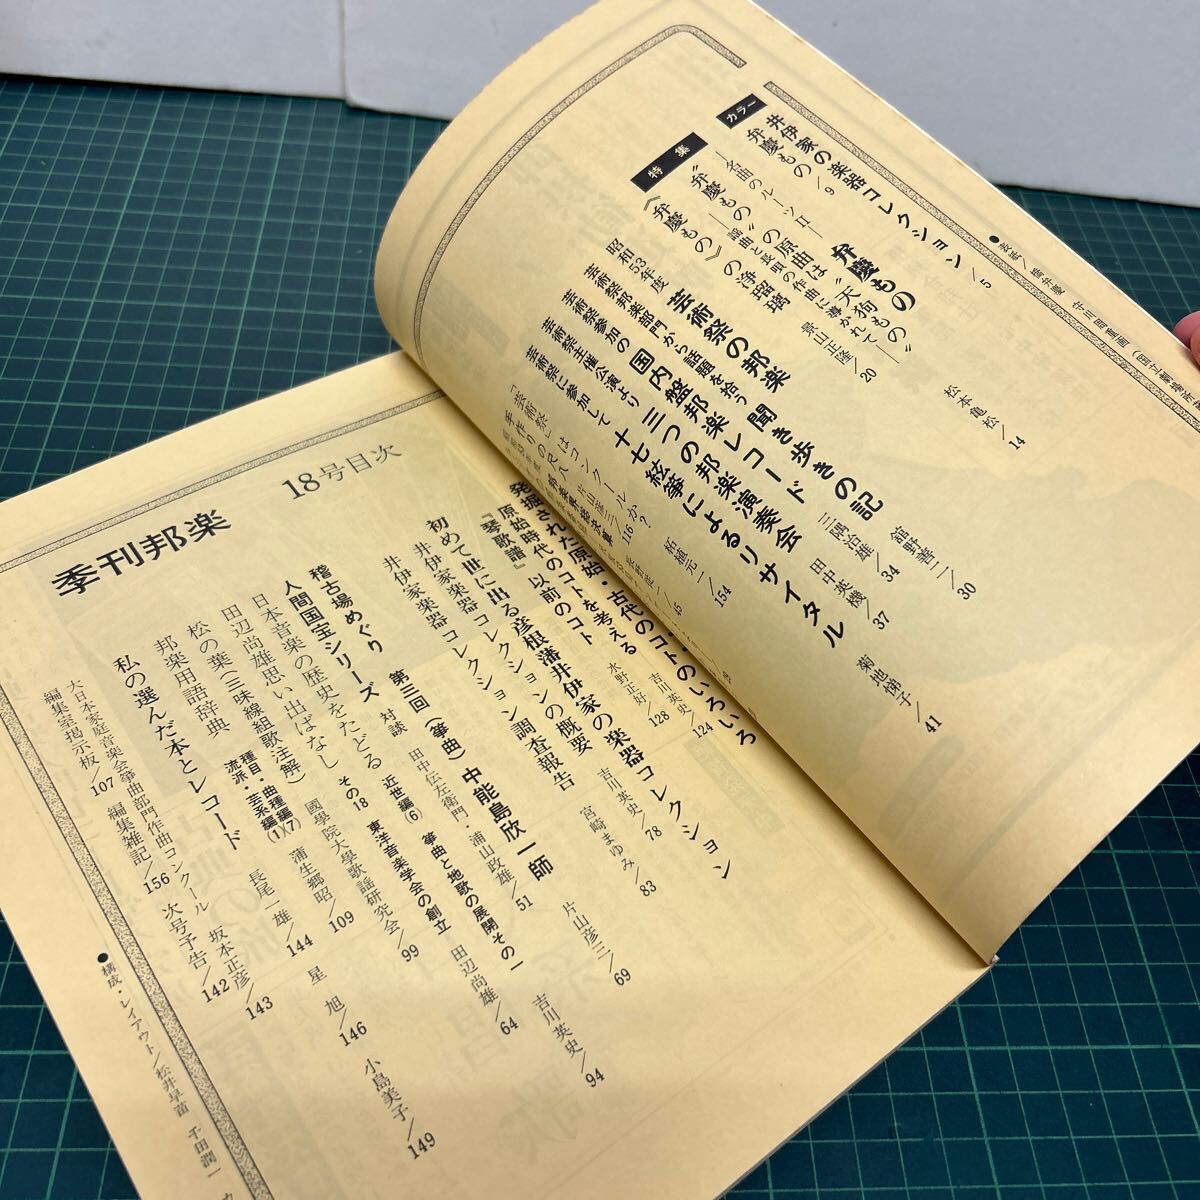 ●表紙／橋弁慶
カラー
井伊家の楽器コレクション／5
弁慶もの／9
特集
弁慶もの
―名曲のルーツⅡ―
―謡曲と長唄の作曲に導かれて―
景山正隆／20
“弁慶もの”の原曲は“天狗もの”
松本亀松／14
《弁慶もの》の浄瑠璃
芸術祭の邦楽 聞き歩きの記
舘野善二／30
昭和53年度
芸術祭邦楽部門から話題を拾う
国内盤邦楽レコード
三隅治雄／34
芸術祭参加の
三つの邦楽演奏会
田中英機／37
芸術祭主催公演より
十七絃箏によるリサイタル
菊地悌子／41
芸術祭に参加して
「芸術祭」はコンクールか？
拓植元一／154
手作りの尺八
片山彦三／116
発掘された原始・古代のコトのいろいろ
原始時代のコトを考える
水野正好／128
『琴歌譜』以前のコト
吉川英史／124
初めて世に出る彦根藩井伊家の楽器コレクション
井伊家楽器コレクションの概要
吉川英史／78
井伊家楽器コレクション調査報告
宮崎まゆみ／83
稽古場めぐり
第三回（箏曲）中能島欣一師
片山彦三／69
人間国宝シリーズ
対談
田中伝左衛門・浦山政雄／51
日本音楽の歴史をたどる
近世編(6) 箏曲と地歌の展開その一
吉川英史／94
田辺尚雄思い出ばなし
その18 東洋音楽学会の創立
田辺尚雄／64
松の葉（三味線組歌注解）
國學院大學歌謡研究会／99
邦楽用語辞典
種目・曲種編(7)
流派・芸系編(1)
蒲生郷昭／109
長尾一雄／144
私の選んだ本とレコード
星旭／146
小島美子／149
大日本家庭音楽会箏曲部門作曲コンクール
坂本正彦／143
編集室掲示板／107
編集雑記／156
次号予告／142
●構成・レイアウト／松井早苗 千田潤一
18号目次
季刊邦楽